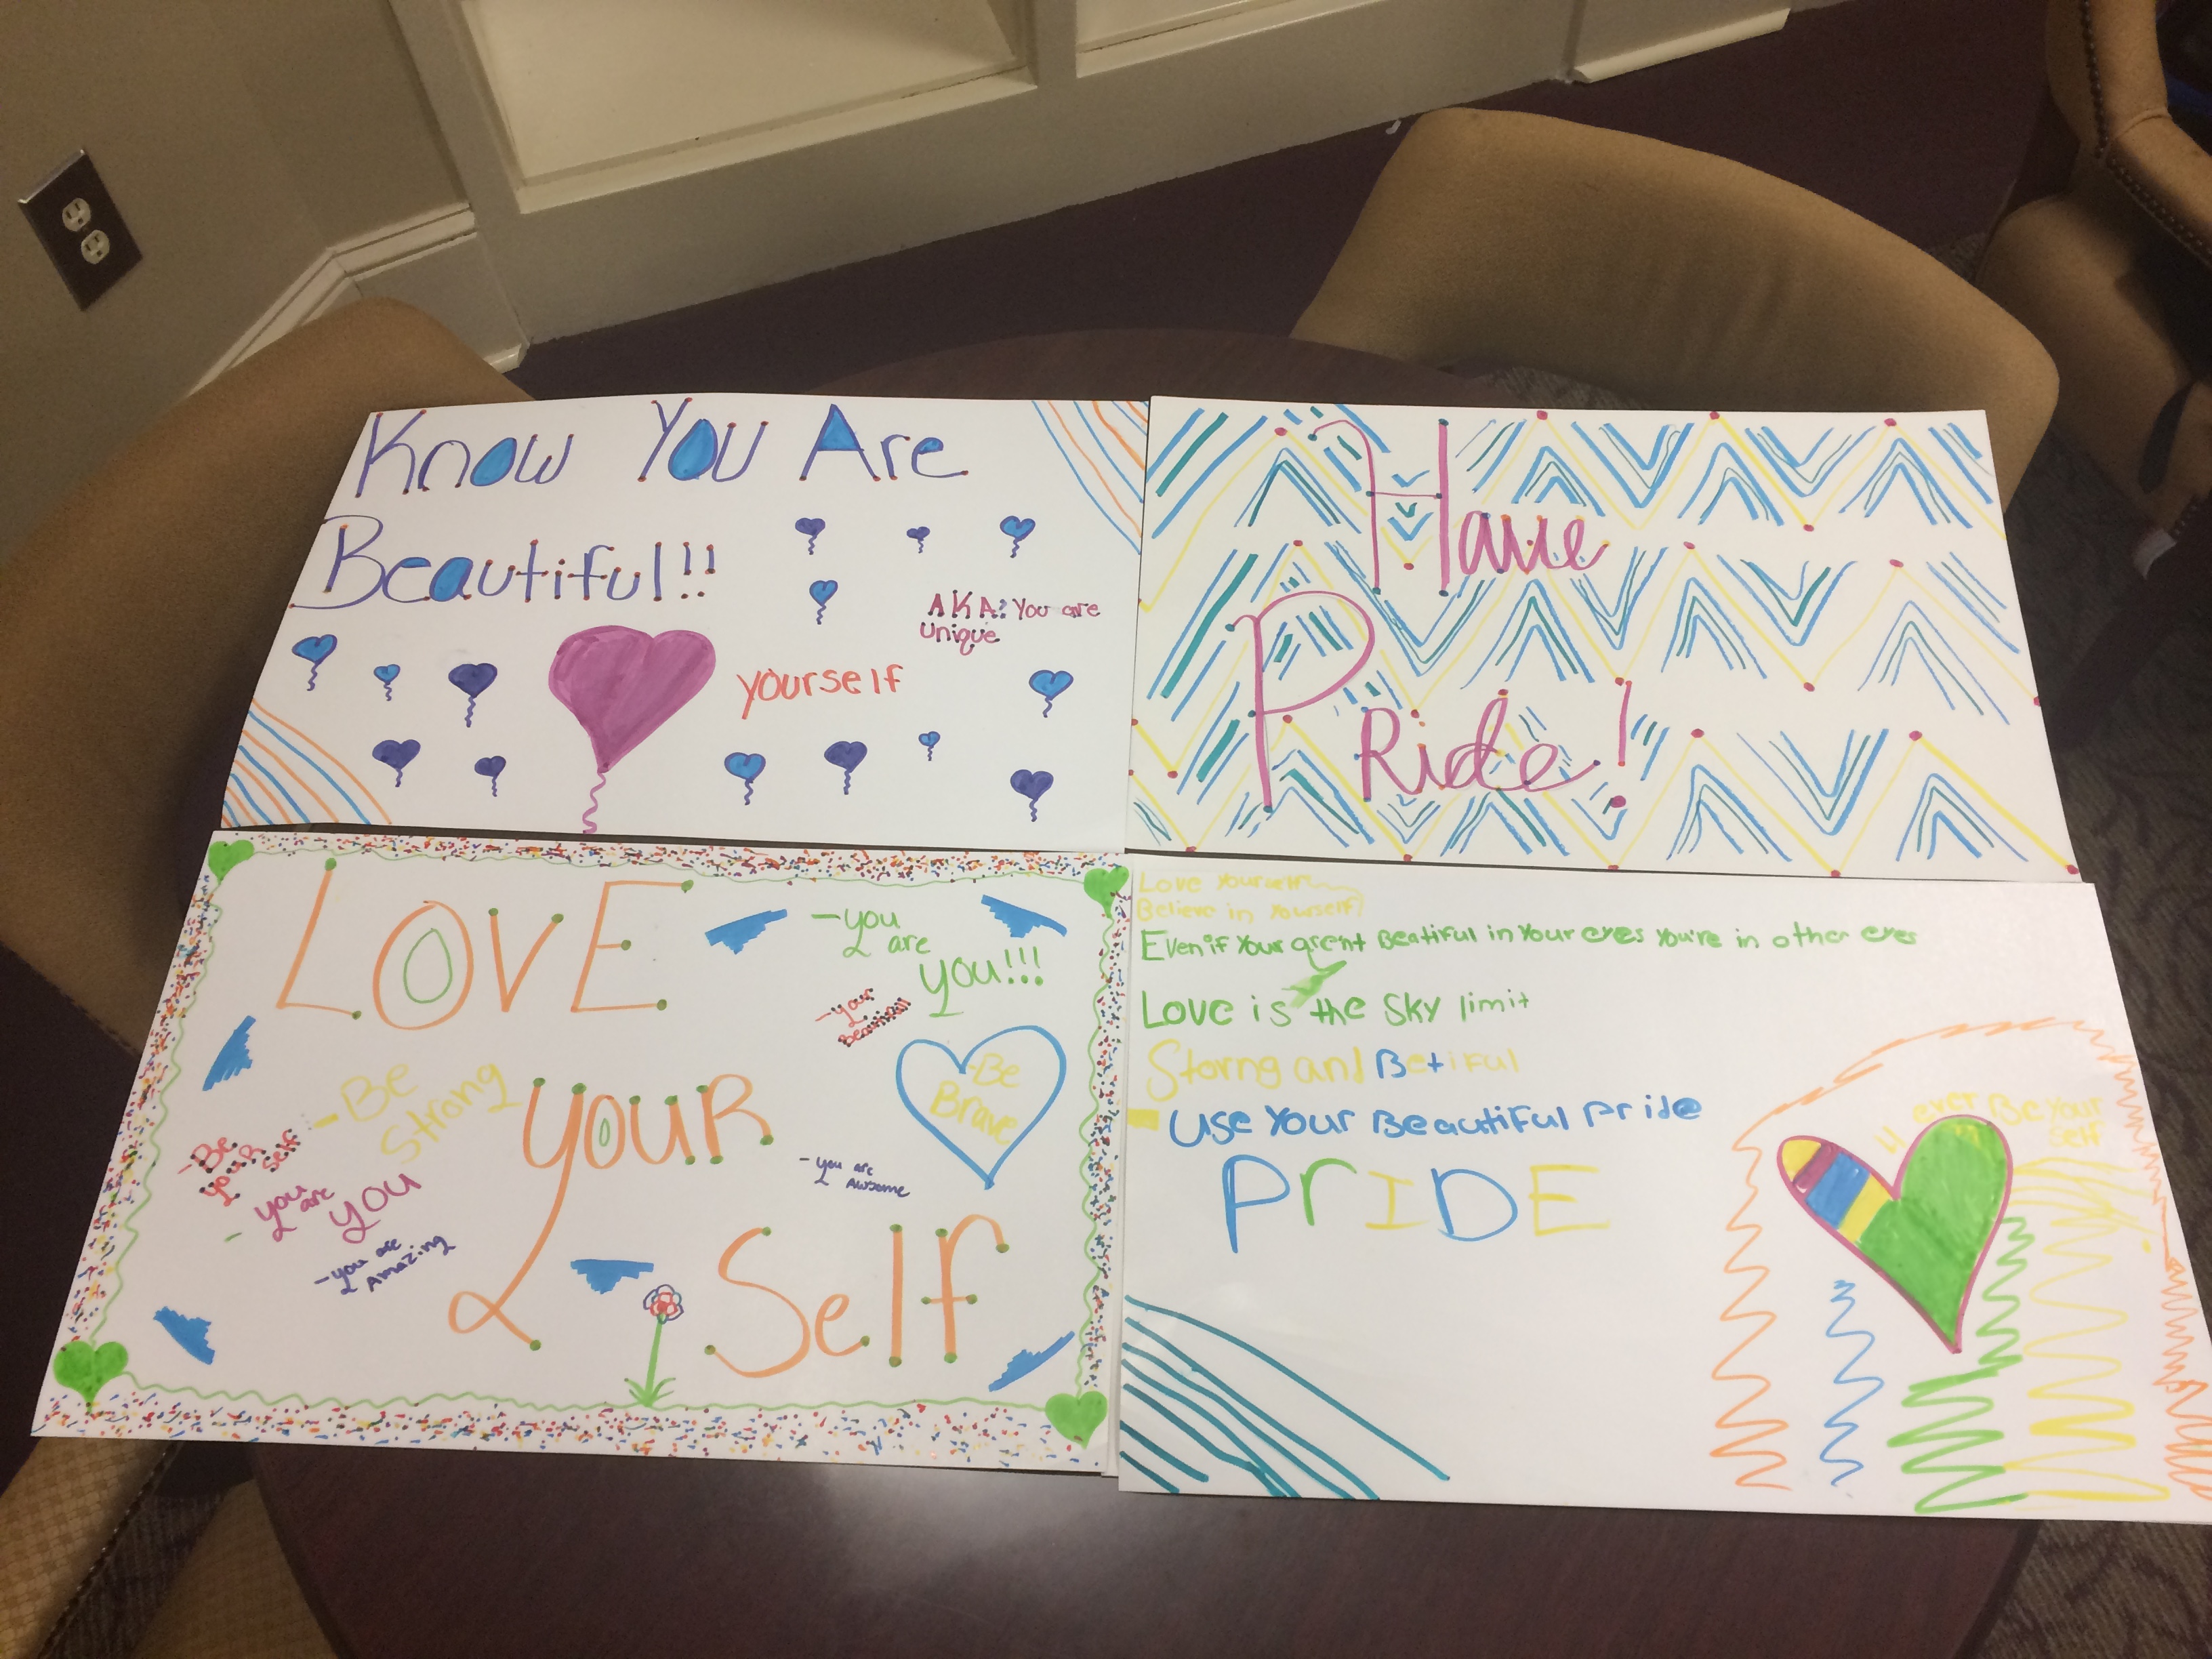 Know You Are
Beautiful!!
AKA: You are
Unique
yourself
Have
Pride!
LOVE
your
Self
-you
are
you!!!
-your
beautiful
-Be
Brave
-Be
Strong
-Be
your
self
-you
are
you
-you are
Amazing
-you are
Awsome
Love Yourself
Believe in Yourself
Even if Your arent Beatiful in Your eyes You're in other eyes
Love is the Sky limit
Storng and Betiful
- Use Your Beautiful Pride
PrIDE
Be Your
Self